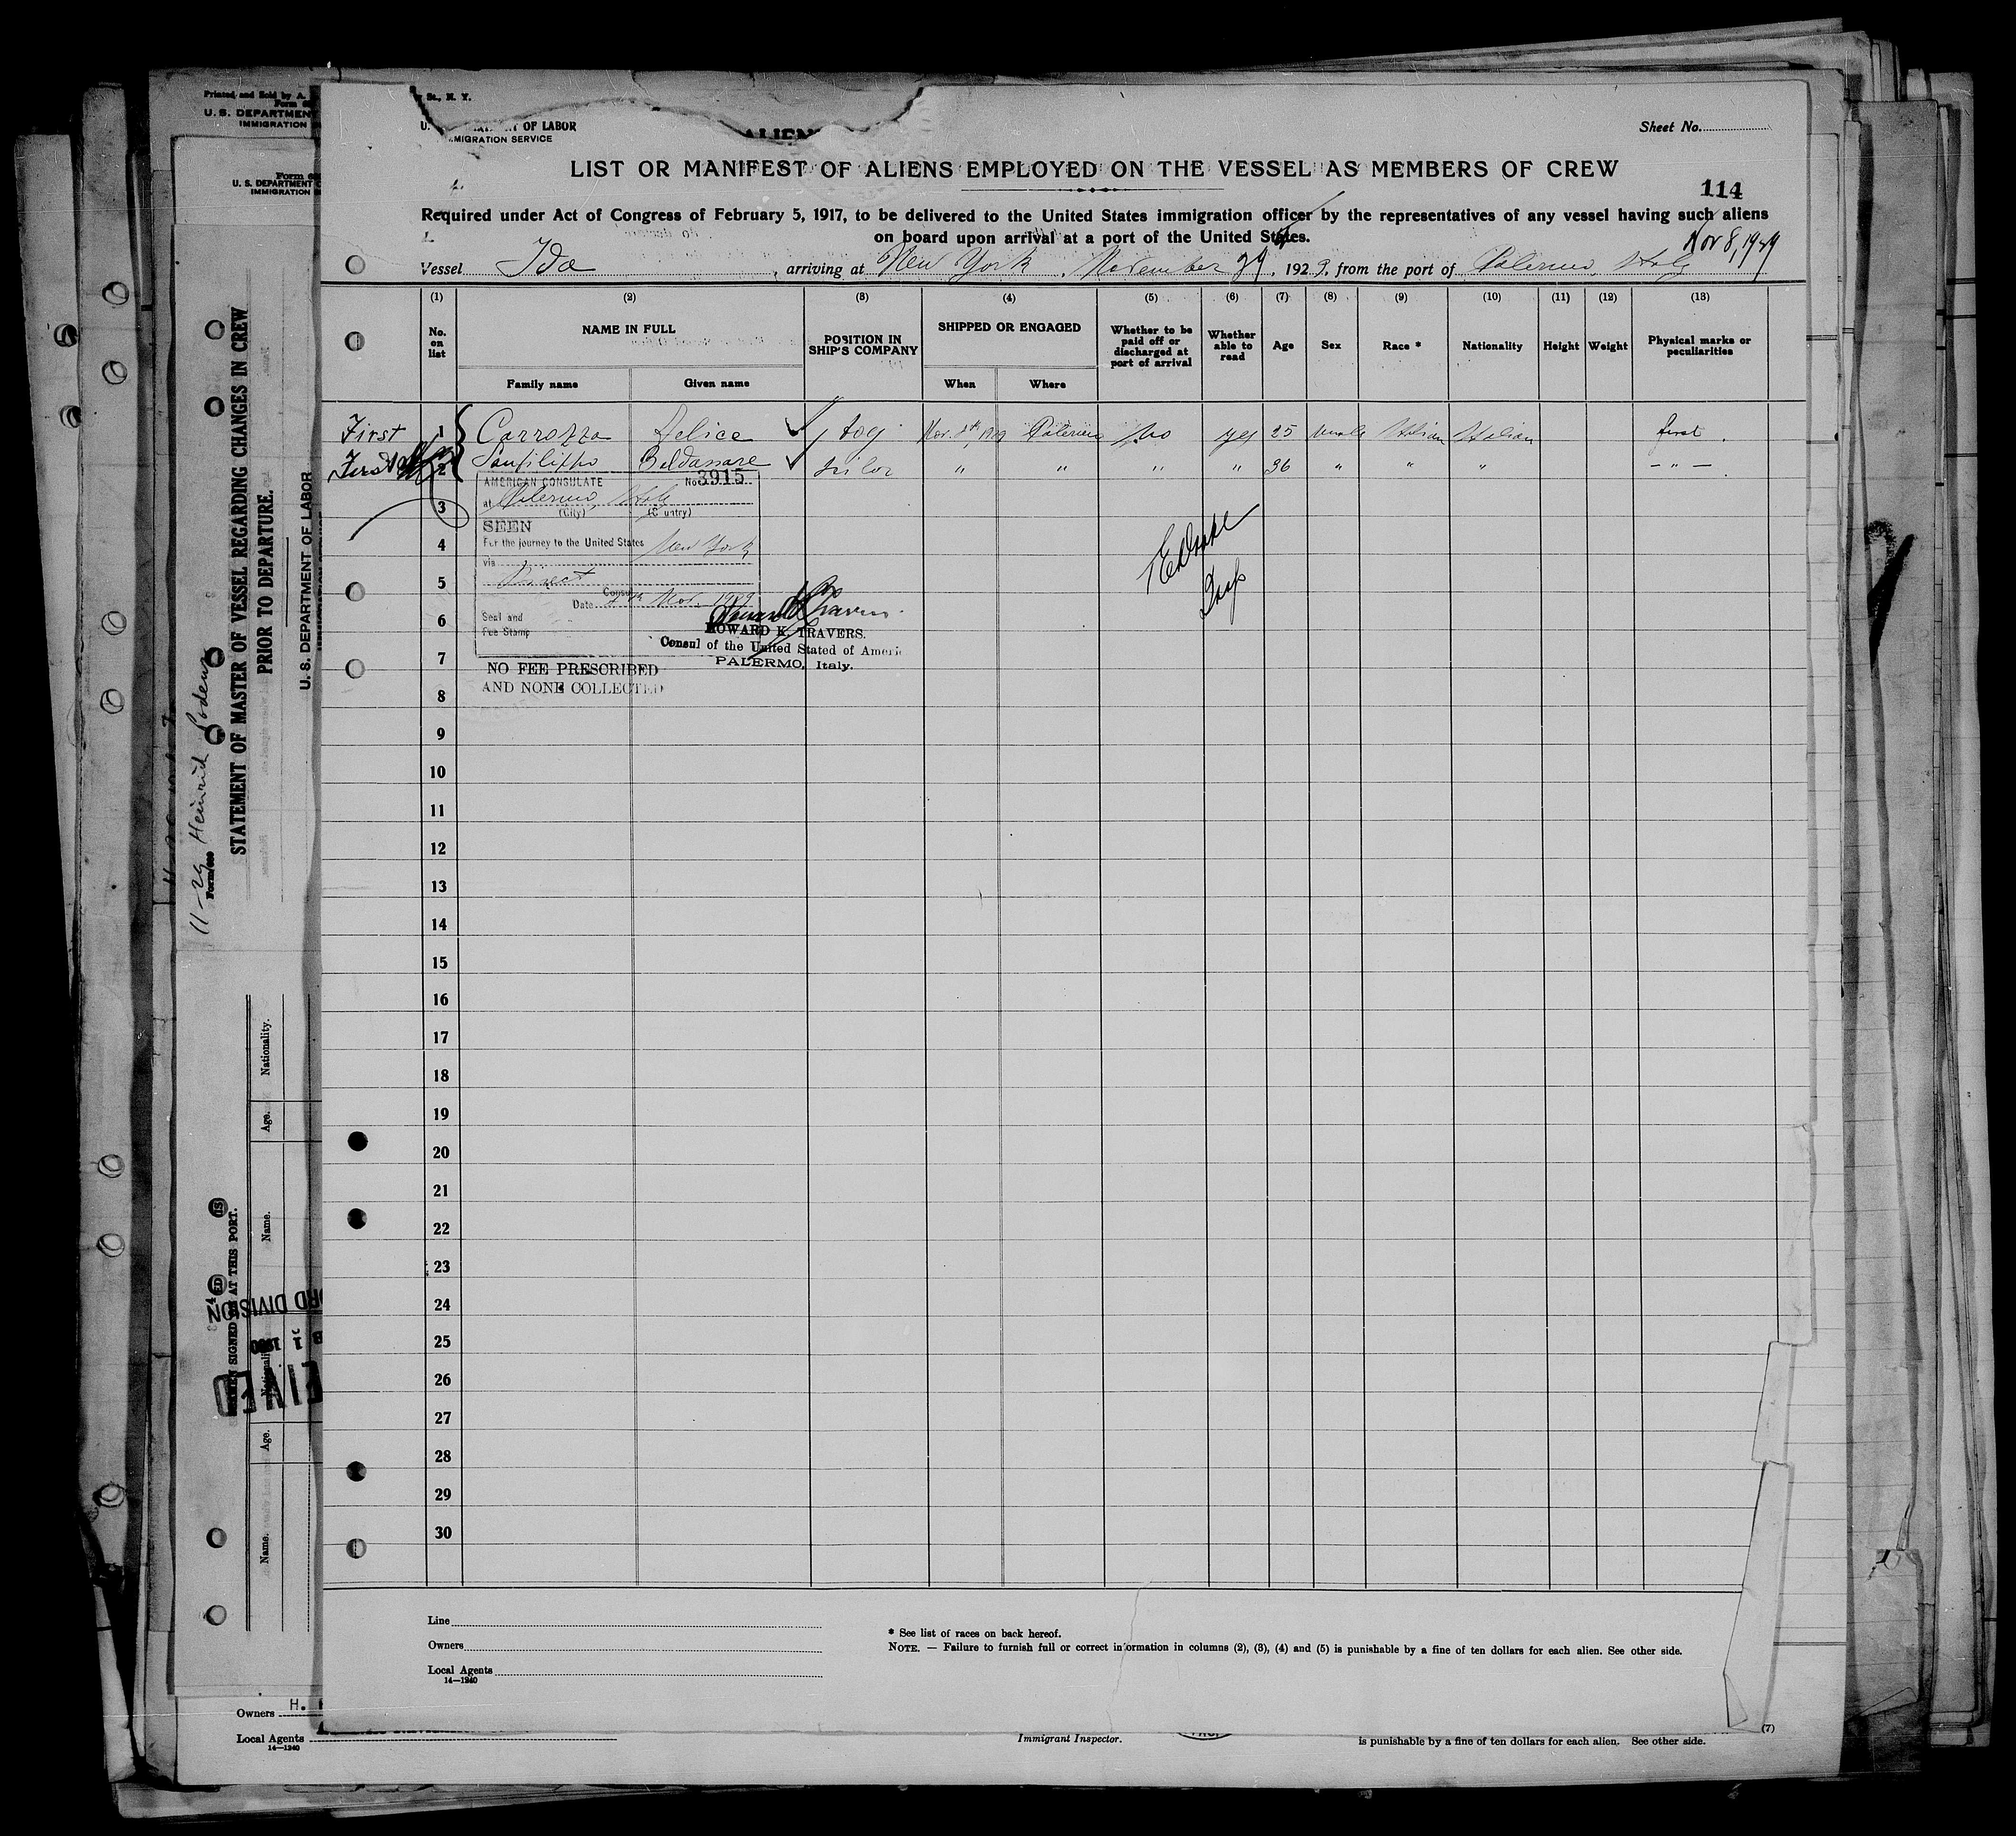 St., N. Y.
OF LABOR
MIGRATION SERVICE
ALIEN
Sheet No.
LIST OR MANIFEST OF ALIENS EMPLOYED ON THE VESSEL AS MEMBERS OF CREW
114
Required under Act of Congress of February 5, 1917, to be delivered to the United States immigration officer by the representatives of any vessel having such aliens
on board upon arrival at a port of the United States.
Nov 8, 1929
Vessel Ida, arriving at New York, November 29, 1929, from the port of Palermo Italy
(1) (2) (3) (4) (5) (6) (7) (8) (9) (10) (11) (12) (13)
No. on list
NAME IN FULL
Family name
Given name
POSITION IN SHIP'S COMPANY
SHIPPED OR ENGAGED
When
Where
Whether to be paid off or discharged at port of arrival
Whether able to read
Age
Sex
Race *
Nationality
Height
Weight
Physical marks or peculiarities
First 1 Carrozza Felice Nov. 8th 1929 Palermo No yes 25 male Italian Italian first
First 2 Sanfilippo Baldassare sailor " " " " 36 " " " — " —
3
4
5
6
7
8
AMERICAN CONSULATE No 3915
at Palermo, Italy
(City) (Country)
SEEN
For the journey to the United States
via New York
Direct
Consul
Date Nov. 1929
Seal and
Fee Stamp
HOWARD K. TRAVERS.
Consul of the United Stated of Americ
PALERMO, Italy.
NO FEE PRESCRIBED
AND NONE COLLECTED
9
10
11
12
13
14
15
16
17
18
19
20
21
22
23
24
25
26
27
28
29
30
Line
Owners
Local Agents
14—1240
* See list of races on back hereof.
NOTE. — Failure to furnish full or correct information in columns (2), (3), (4) and (5) is punishable by a fine of ten dollars for each alien. See other side.
Printed and Sold by A.
U. S. DEPARTMENT
IMMIGRATION
Form 6
U. S. DEPARTMENT
IMMIGRATION
STATEMENT OF MASTER OF VESSEL REGARDING CHANGES IN CREW
PRIOR TO DEPARTURE.
U. S. DEPARTMENT OF LABOR
11-29 Heinrich
Nationality.
Age.
Name.
SIGNED AT THIS PORT.
Age.
Name.
Owners H.
Local Agents
14—1240
Immigrant Inspector.
(7)
is punishable by a fine of ten dollars for each alien. See other side.